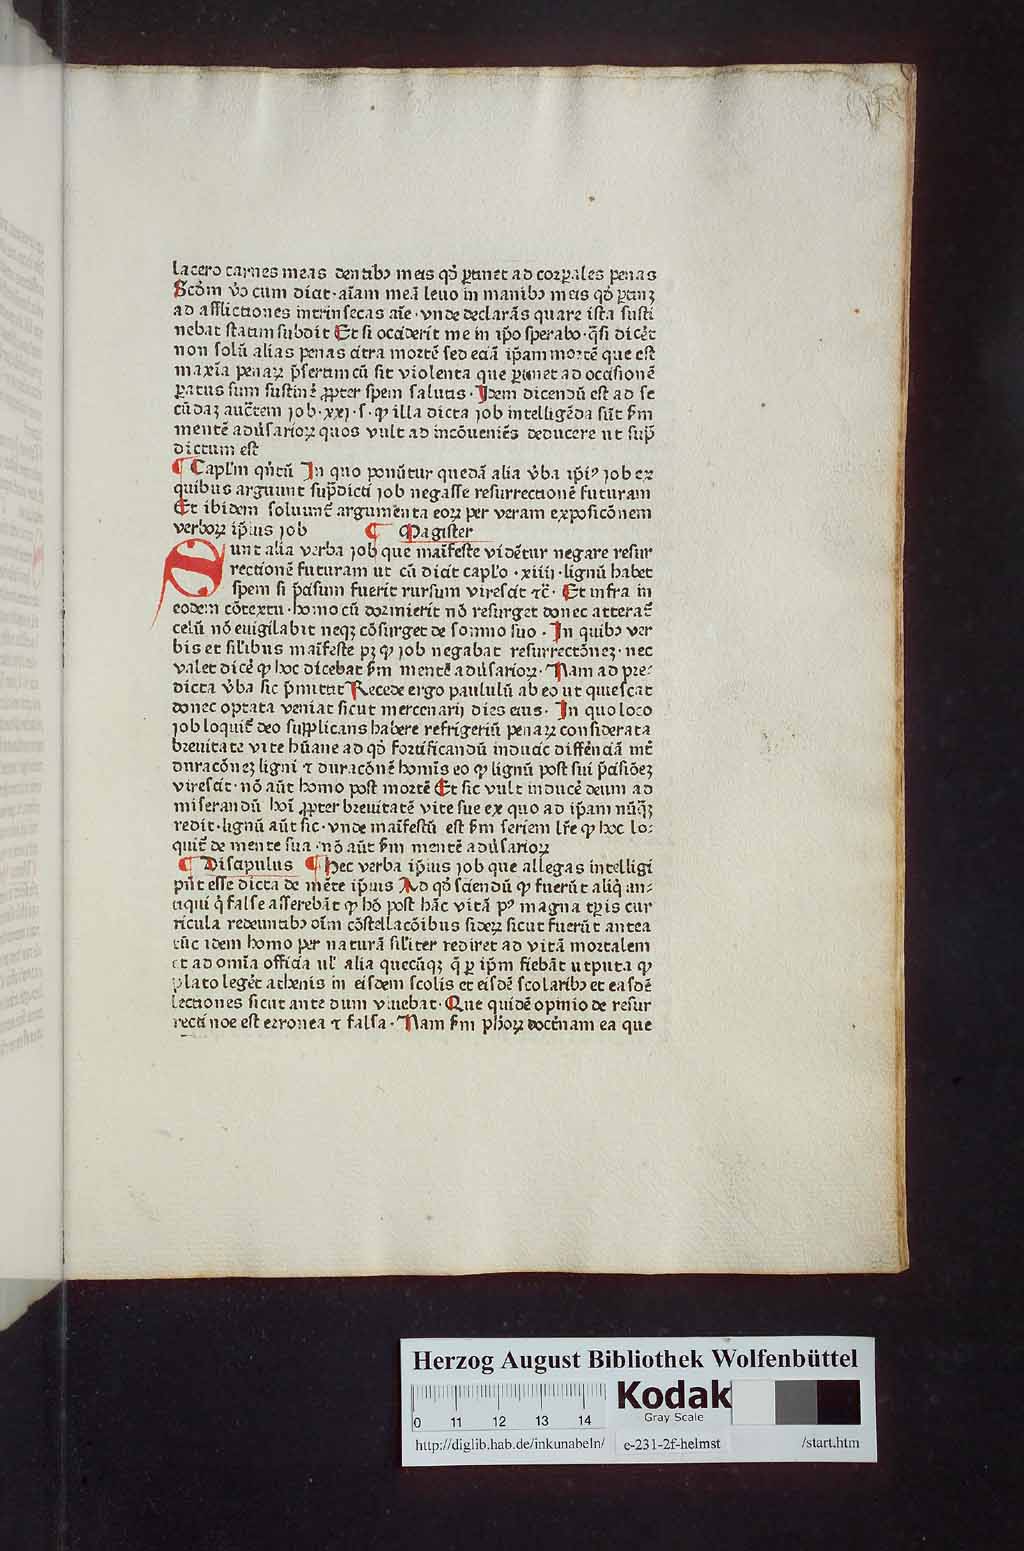 lacero carnes meas dentibꝰ meis qd̕ ꝑtinet ad corꝑales penas
Scd̕m v̕o cum dicit·aīam meā leuo in manibꝰ meis qd̕ ꝑtinꝫ
ad afflictiones intrinsecas aīe·vnde declarās quare ista susti
nebat statim subdit Et si occiderit me in ip̄o sperabo·q̄si dicēt
non solū alias penas citra mortē sed eciā ip̄am mortē que est
maxīa penaꝝ p̄sertim cū sit violenta que ꝑtinet ad occisionē
ꝑatus sum sustine᷑ ꝓpter spem salutis·Idem dicendū est ad se
cūdaꝫ auctētem iob·xxj·s·ꝙ illa dicta iob intelligēda sūt s̄m
mentē adu̕sarioꝝ quos vult ad incōueniēs deducere ut sup̄
dictum est
¶ Capl̕m qn̄tū In quo ponūtur quedā alia v̕ba ip̄iꝰ iob ex
quibus arguunt sup̄dicti iob negasse resurrectionē futuram
Et ibidem soluunt᷑ argumenta eoꝝ per veram exposicōnem
verboꝝ ip̄ius iob ¶ Magister
Sunt alia verba iob que maīfeste vidētur negare resur
rectionē futuram ut cū dicit capl̕o·xiiij·lignū habet
spem si p̄cisum fuerit rursum virescit ⁊c̄·Et infra in
eodem cōtextu·homo cū dormierit nō resurget donec atterat᷑
celū nō euigilabit neqꝫ cōsurget de somno suo·In quibꝰ ver
bis et sil̕ibus maīfeste pꝫ ꝙ iob negabat resurrectōneꝫ·nec
valet dice᷑ ꝙ hoc dicebat s̄m mentē adu̕sarioꝝ·Nam ad pre-
dicta v̕ba sic p̄mittit Recede ergo paululū ab eo ut quiescat
donec optata veniat sicut mercenarij dies eius·In quo loco
iob loquit᷑ deo supplicans habere refrigeriū penaꝝ considerata
breuitate vite hūane ad qd̕ fortificandū inducit diffēnciā int᷑
duracōneꝫ ligni ⁊ duracōnē homīs eo ꝙ lignū post sui p̄cisiōeꝫ
virescit·nō aūt homo post mortē Et sic vult induce᷑ deum ad
miserandū hoī ꝓpter breuitatē vite sue ex quo ad ip̄am nūq̄ꝫ
redit·lignū aūt sic·vnde maīfestū est s̄m seriem lr̄e ꝙ hoc lo-
quit᷑ de mente sua·nō aūt s̄m mentē adu̕sarioꝝ
¶ Discipulus ¶ Hec verba ip̄ius iob que allegas intelligi
pn̄t esse dicta de mēte ip̄ius Ad qd̕ sciendū ꝙ fuerūt aliq̄ an-
tiqui q̄ false asserebāt ꝙ hō post hāc vitā pꝰ magna tꝑis cur
ricula redeuntibꝰ oīm cōstellacōibus sideꝝ sicut fuerūt antea
tūc idem homo per naturā sil̕iter rediret ad vitā mortalem
et ad omīa officia ul̕ alia quecūqꝫ q̄ ꝑ ip̄m fiebāt utputa ꝙ
plato lege᷑t athenis in eisdem scolis et eisdē scolaribꝰ et easdē
lectiones sicut ante dum viuebat·Que quidē opinio de resur
rectinoe est erronea ⁊ falsa·Nam s̄m ph̄oꝝ doct᷑nam ea que
Herzog August Bibliothek Wolfenbüttel
0 11 12 13 14
Kodak
Gray Scale
http://diglib.hab.de/inkunabeln/ e-231-2f-helmst /start.htm